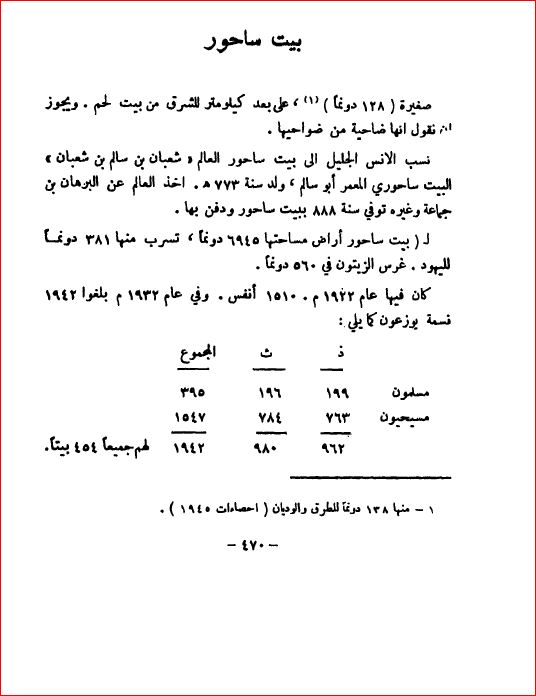 بيت ساحور
صغيرة ( ١٢٨ دونماً ) (١) ، على بعد كيلومتر للشرق من بيت لحم . ويجوز
ان نقول انها ضاحية من ضواحيها .
نسب الانس الجليل الى بيت ساحور العالم « شعبان بن سالم بن شعبان »
البيت ساحوري المعمر أبو سالم ، ولد سنة ٧٧٣ ه . اخذ العالم عن البرهان بن
جماعة وغيره توفي سنة ٨٨٨ ببيت ساحور ودفن بها .
لـ ( بيت ساحور أراض مساحتها ٦٩٤٥ دونماً ، تسرب منها ٣٨١ دونمـاً
لليهود . غرس الزيتون في ٥٦٠ دونماً .
كان فيها عام ١٩٢٢ م . ١٥١٠ أنفس . وفي عام ١٩٣٢ م بلغوا ١٩٤٢
نسمة يوزعون كما يلي :
ذ ث المجموع
مسلمون ١٩٩ ١٩٦ ٣٩٥
مسيحيون ٧٦٣ ٧٨٤ ١٥٤٧
٩٦٢ ٩٨٠ ١٩٤٢ لهم جميعاً ٤٥٤ بيتاً.
١ – منها ١٣٨ دونماً للطرق والوديان ( احصاءات ١٩٤٥ ) .
– ٤٧٠ –